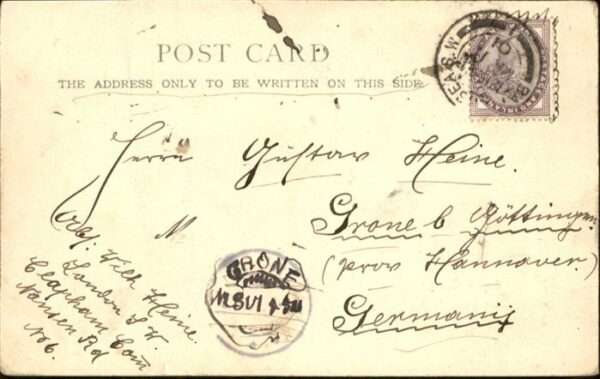 POST CARD
THE ADDRESS ONLY TO BE WRITTEN ON THIS SIDE
Herrn Gustav Heine.
Grone b Göttingen.
(prov Hannover.)
Germany
Abs. Wilh Heine.
London S W.
Clapham Com
Nansen Rd
No 6.
GRONE
SEA S.W.